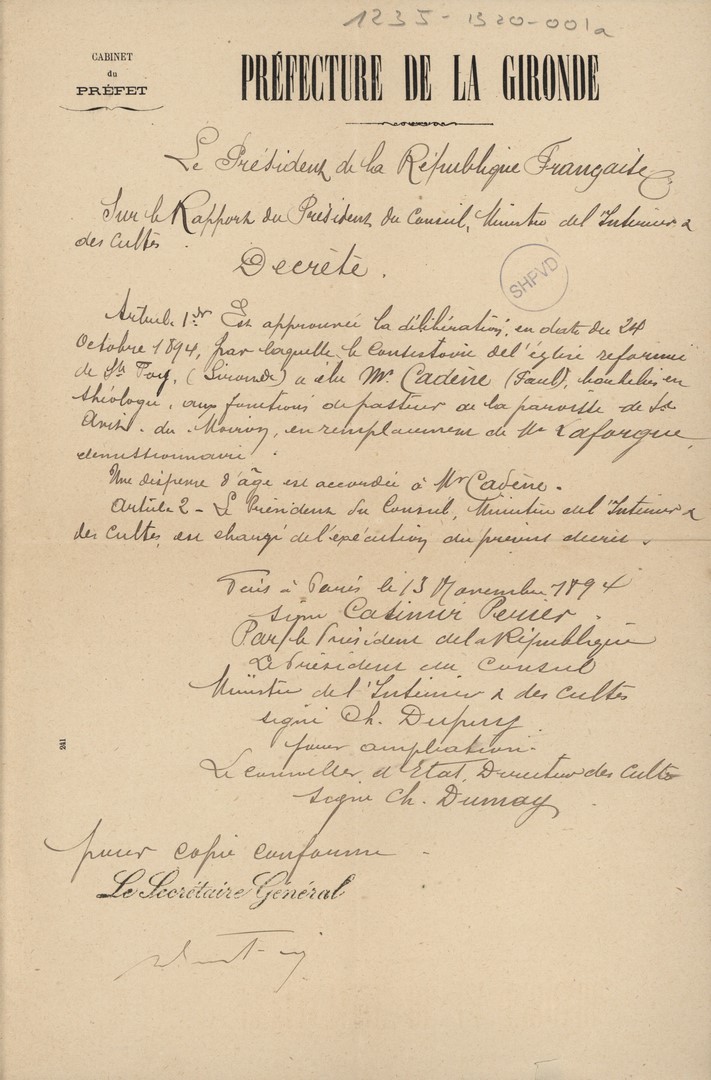 1235-1320-001a
CABINET
du
PRÉFET
PRÉFECTURE DE LA GIRONDE
Le Président de la République Française
Sur le Rapport du Président du Conseil, Ministre de l'Intérieur &
des Cultes
Décrète.
SHPVD
Article 1er Est approuvée la délibération, en date du 24
Octobre 1894, par laquelle le Consistoire de l'église réformée
de Ste Foy, (Gironde) a élu Mr. Cadène (Paul), bachelier en
théologie, aux fonctions de pasteur de la paroisse de St
Avit. du. Moiron, en remplacement de Mr Laforgue,
démissionnaire.
Une dispense d'âge est accordée à Mr Cadène.
Article 2 - Le Président du Conseil, Ministre de l'Intérieur &
des Cultes, est chargé de l'exécution du présent décret.
Fait à Paris le 13 Novembre 1894
signé Casimir Perier.
Par le Président de la République
Le Président du Conseil
Ministre de l'Intérieur & des Cultes
signé Ch. Dupuy.
pour ampliation.
Le conseiller d'Etat, Directeur des Cultes
signé Ch. Dumay
241
pour copie conforme.
Le Secrétaire Général